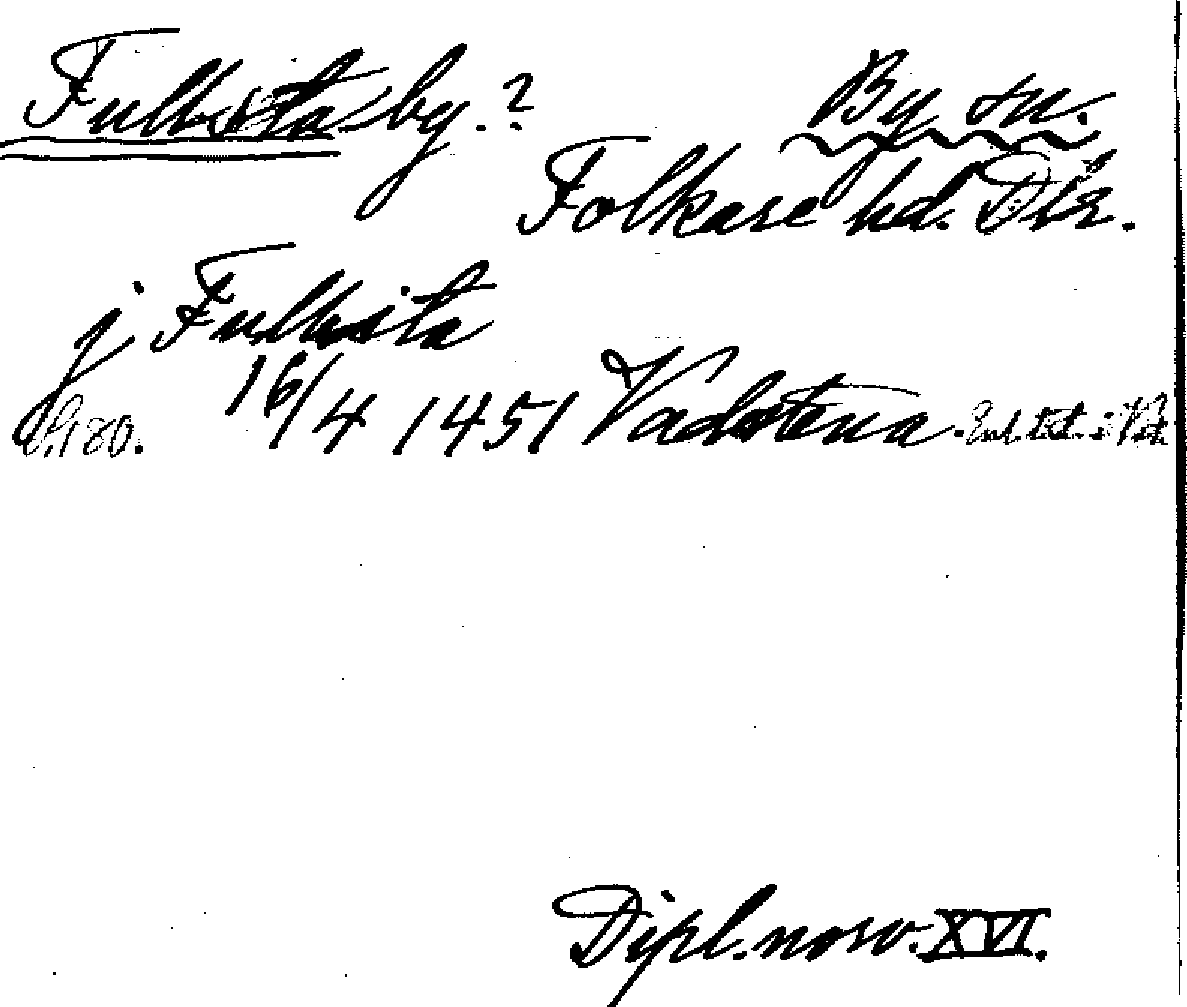 Fullsta by.? By sn.
Folkare hd. Dlr.
j Fulbsita
S. 180. 16/4 1451 Vadstena. Enl. tr.
Dipl. norv. XVI.